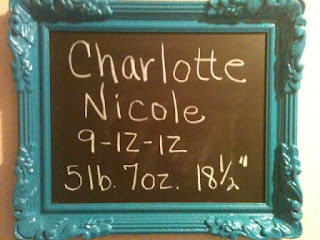 Charlotte
Nicole
9-12-12
5lb. 7oz. 18½"